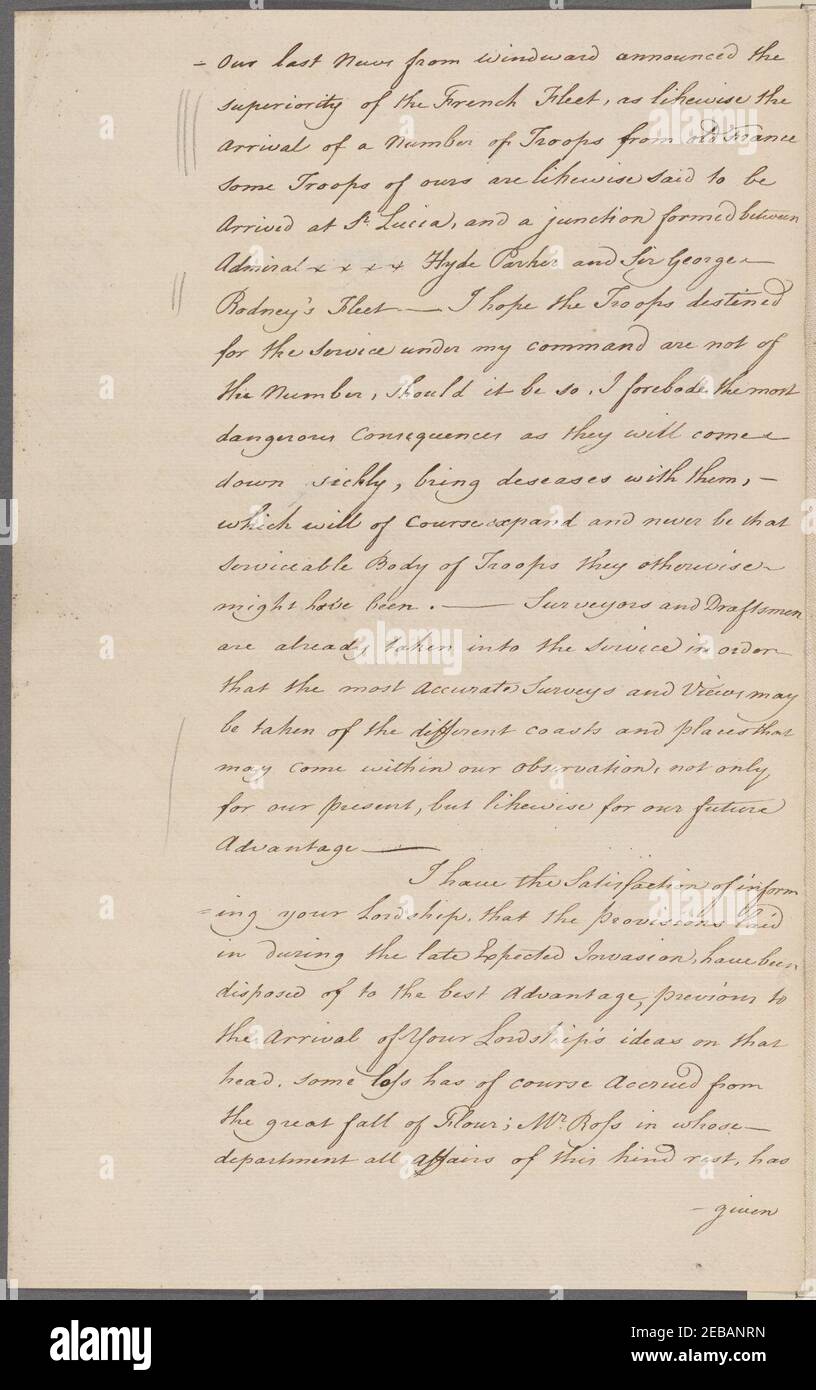 - Our last News from windward announced the
superiority of the French Fleet, as likewise the
arrival of a Number of Troops from old France
some Troops of ours are likewise said to be
Arrived at St. Lucia, and a junction formed between
Admiral x x x x Hyde Parker and Sir George
Rodney's Fleet — I hope the Troops destined
for the service under my command are not of
the Number, should it be so, I forebode the most
dangerous Consequences as they will come
down sickly, bring deseases with them, -
which will of Course expand and never be that
serviceable Body of Troops they otherwise
might have been. — Surveyors and Draftsmen
are already taken into the service in order
that the most Accurate Surveys and Views may
be taken of the different coasts and places that
may come within our observation, not only
for our present, but likewise for our future
Advantage —
I have the Satisfaction of inform
=ing your Lordship, that the provisions laid
in during the late Expected Invasion, have been
disposed of to the best Advantage, previous to
the Arrival of Your Lordship's ideas on that
head. some loss has of course Accrued from
the great fall of Flour; Mr. Ross in whose
department all affairs of this kind rest, has
- given
alamy
Image ID: 2EBANRN
www.alamy.com